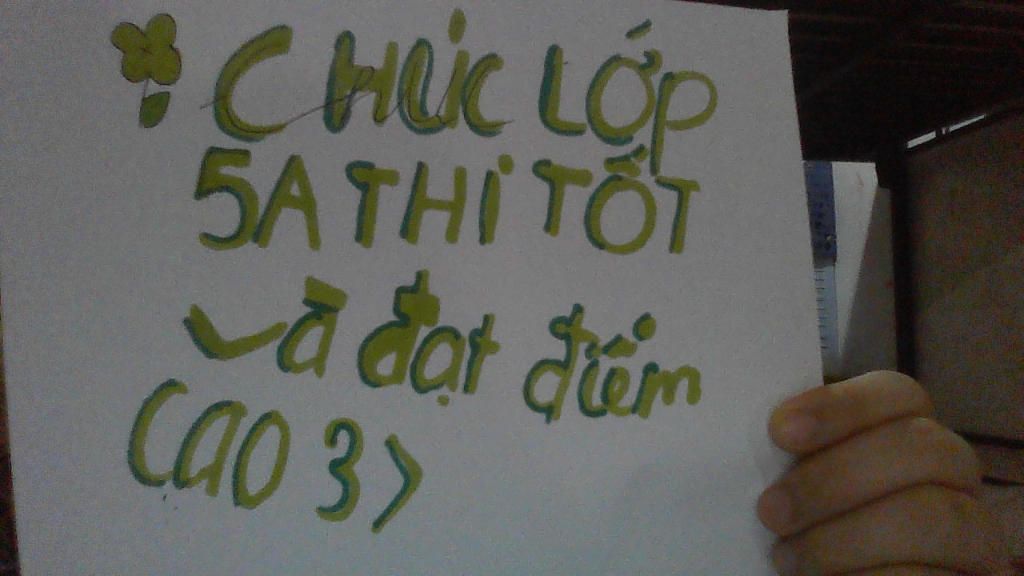 CHÚC LỚP
5A THi TỐT
và đạt điểm
cao 3>